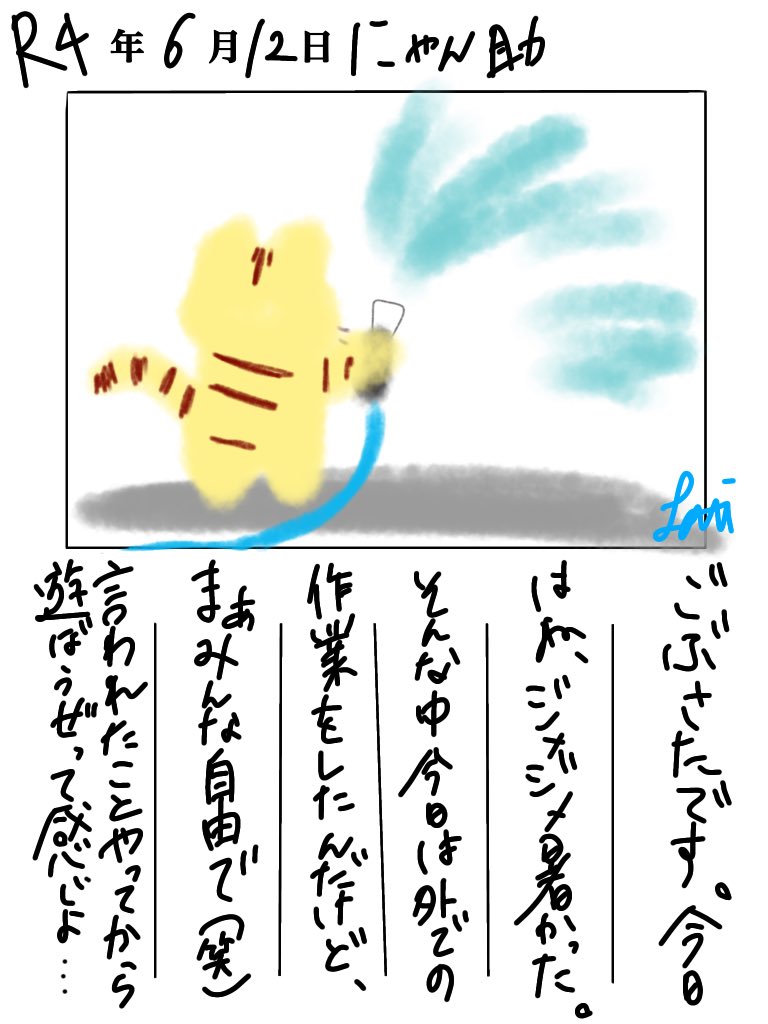 R4年6月12日 にゃん助
ごぶさたです。今日
はね、ジメジメ暑かった。
そんな中今日は外での
作業をしたんだけど、
まぁみんな自由で(笑)
言われたことやってから
遊ばうぜって感じよ…